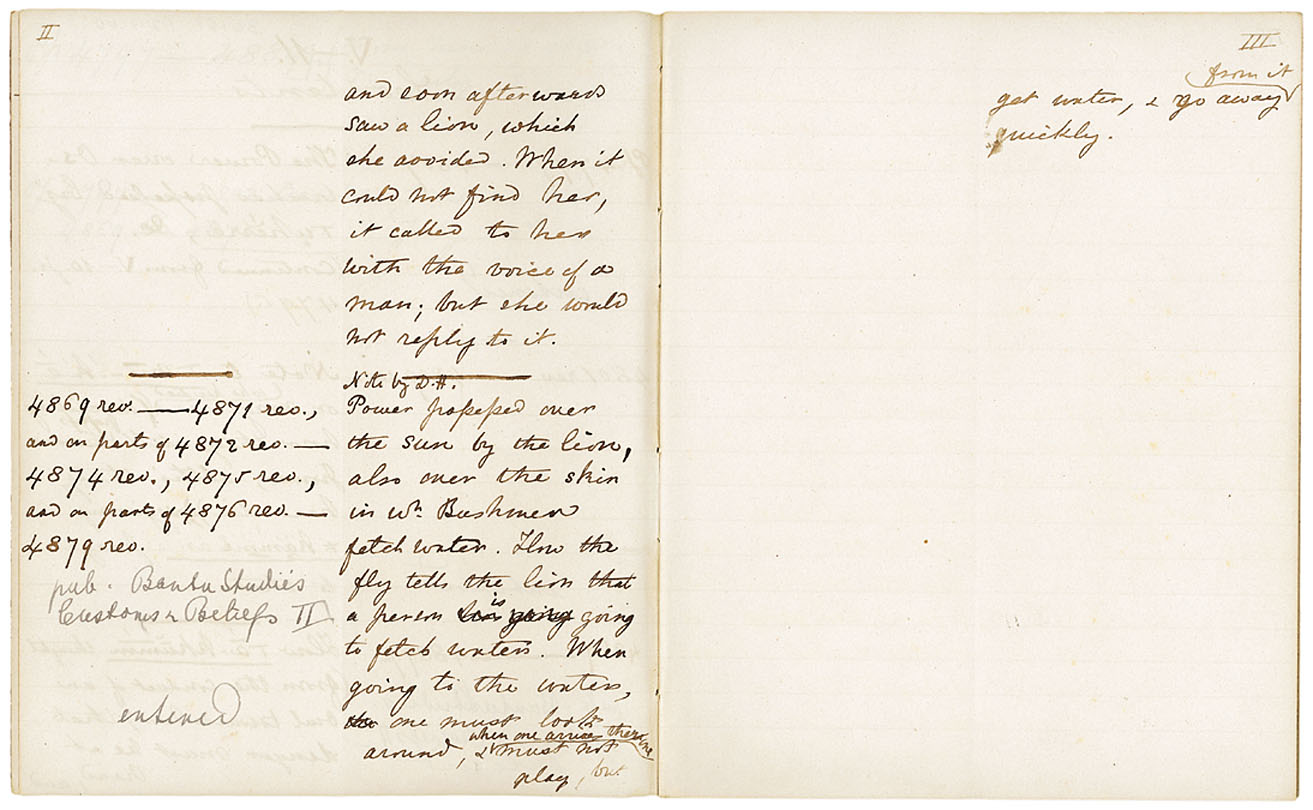 II
and soon afterwards
saw a lion, which
she avoided. When it
could not find her,
it called to her
with the voice of a
man; but she would
not reply to it.
Note by D.H.
4869 rev. — 4871 rev.,
and on parts of 4872 rev. —
4874 rev., 4875 rev.,
and on parts of 4876 rev. —
4879 rev.
pub. Bantu Studies
Customs & Beliefs II
entered
Power possessed over
the sun by the lion,
also over the skin
in wh. Bushmen
fetch water. How the
fly tells the lion that
a person is going
to fetch water. When
going to the water,
one must look
around, & when one arrives there one
must not
play, but
III
get water, & go away from it
quickly.